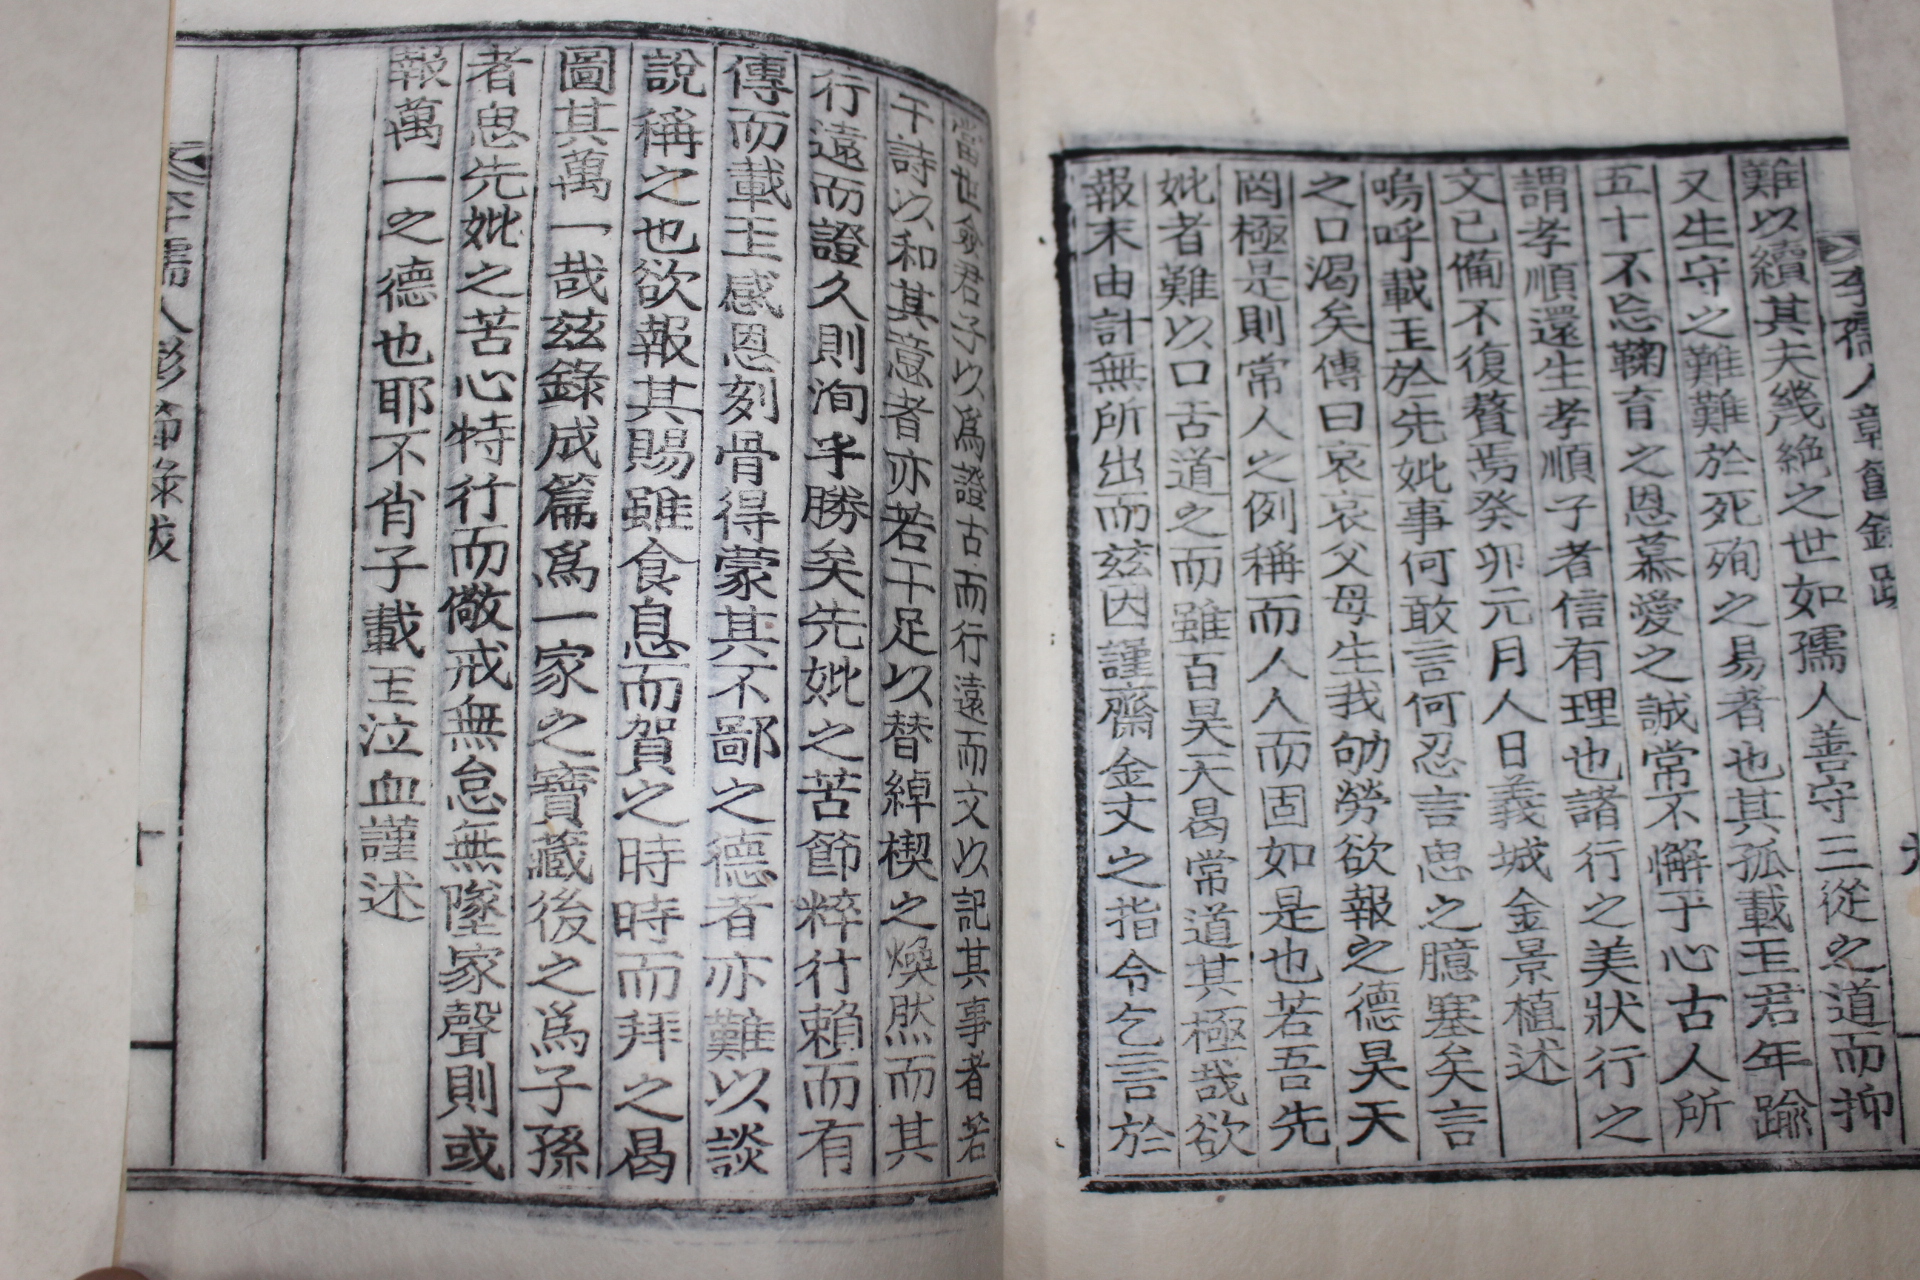 李孺人彰節錄跋
難以續其夫幾絶之世如孺人善守三從之道而抑
又生守之難難於死殉之易者也其孤載王君年踰
五十不忘鞠育之恩慕愛之誠常不懈于心古人所
謂孝順還生孝順子者信有理也諸行之美狀行之
文已備不復贅焉癸卯元月人日義城金景植述
嗚呼載王於先妣事何敢言何忍言思之臆塞矣言
之口渴矣傳曰哀哀父母生我劬勞欲報之德昊天
罔極是則常人之例稱而人人而固如是也若吾先
妣者難以口舌道之而雖百昊天曷常道其極哉欲
報末由計無所出而玆因謹齋金丈之指令乞言於
當世僉君子以爲證古而行遠而文以記其事者若
干詩以和其意者亦若干足以替綽楔之煥然而其
行遠而證久則洵乎勝矣先妣之苦節粹行賴而有
傳而載王感恩刻骨得蒙其不鄙之德者亦難以談
說稱之也欲報其賜雖食息而賀之時時而拜之曷
圖其萬一哉玆錄成篇爲一家之寶藏後之爲子孫
者思先妣之苦心特行而儆戒無怠無墜家聲則或
報萬一之德也耶不肖子載王泣血謹述
李孺人彰節錄跋
十